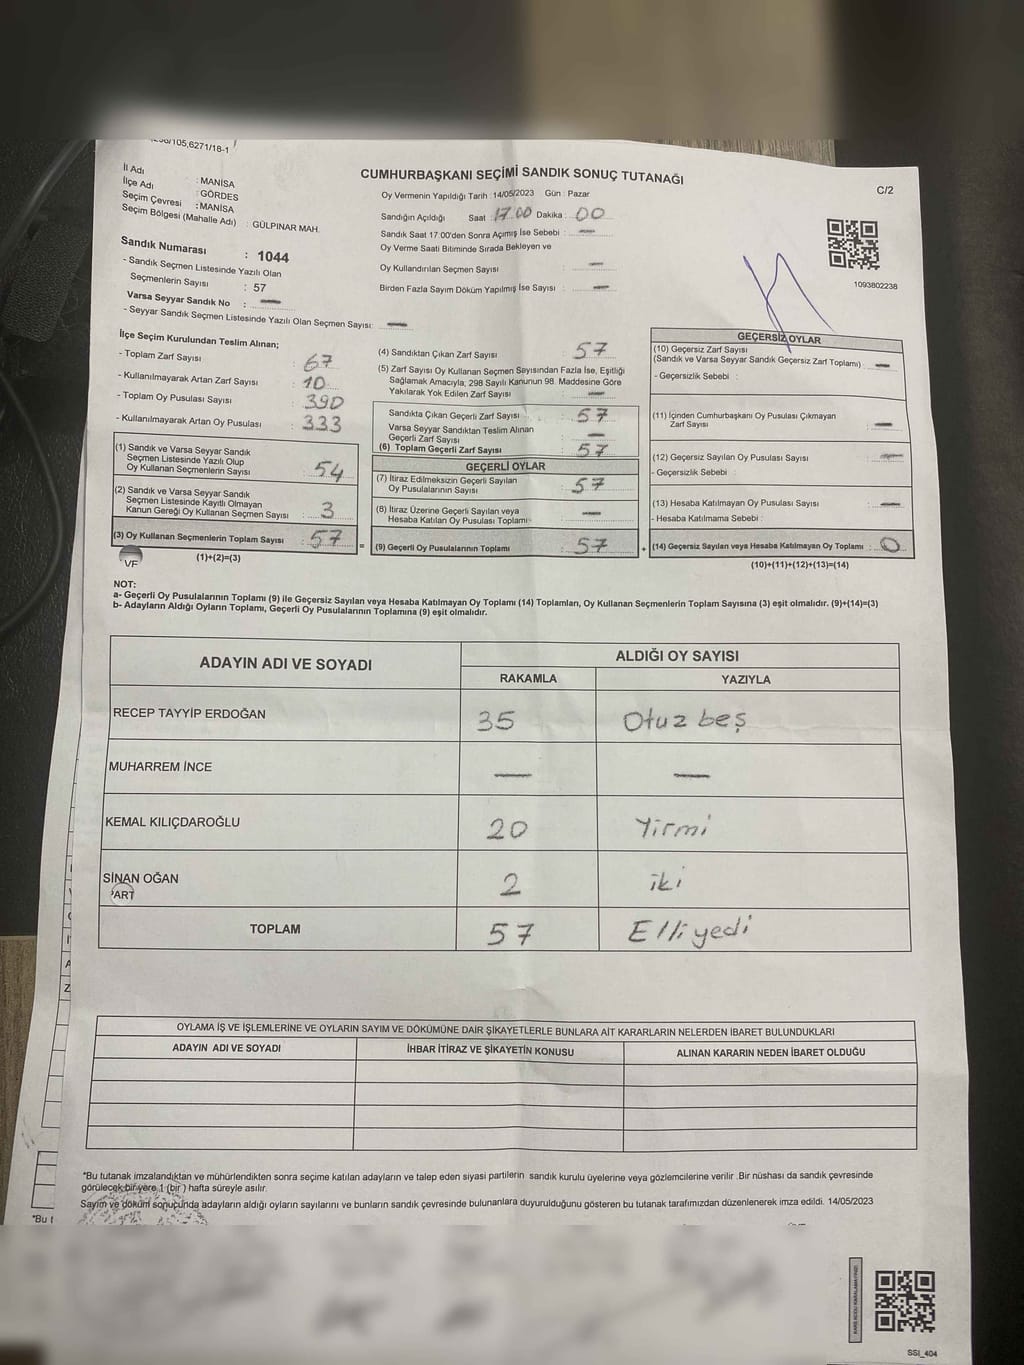 CUMHURBAŞKANI SEÇİMİ SANDIK SONUÇ TUTANAĞI
C/2
İl Adı : MANİSA
İlçe Adı : GÖRDES
Seçim Çevresi : MANİSA
Seçim Bölgesi (Mahalle Adı) : GÜLPINAR MAH.
Sandık Numarası : 1044
- Sandık Seçmen Listesinde Yazılı Olan
Seçmenlerin Sayısı : 57
Varsa Seyyar Sandık No : —
- Seyyar Sandık Seçmen Listesinde Yazılı Olan Seçmen Sayısı: —
Oy Vermenin Yapıldığı Tarih : 14/05/2023 Gün : Pazar
Sandığın Açıldığı Saat : 17.00 Dakika : 00
Sandık Saat 17.00'den Sonra Açımış İse Sebebi : —
Oy Verme Saati Bitiminde Sırada Bekleyen ve
Oy Kullandırılan Seçmen Sayısı : —
Birden Fazla Sayım Döküm Yapılmış İse Sayısı : —
1093802238
İlçe Seçim Kurulundan Teslim Alınan;
- Toplam Zarf Sayısı : 67
- Kullanılmayarak Artan Zarf Sayısı : 10
- Toplam Oy Pusulası Sayısı : 390
- Kullanılmayarak Artan Oy Pusulası : 333
(1) Sandık ve Varsa Seyyar Sandık
Seçmen Listesinde Yazılı Olup
Oy Kullanan Seçmenlerin Sayısı : 54
(2) Sandık ve Varsa Seyyar Sandık
Seçmen Listesinde Kayıtlı Olmayan
Kanun Gereği Oy Kullanan Seçmen Sayısı : 3
(3) Oy Kullanan Seçmenlerin Toplam Sayısı : 57 =
VF
(1)+(2)=(3)
(4) Sandıktan Çıkan Zarf Sayısı : 57
(5) Zarf Sayısı Oy Kullanan Seçmen Sayısından Fazla İse, Eşitliği
Sağlamak Amacıyla, 298 Sayılı Kanunun 98. Maddesine Göre
Yakılarak Yok Edilen Zarf Sayısı : —
Sandıkta Çıkan Geçerli Zarf Sayısı : 57
Varsa Seyyar Sandıktan Teslim Alınan
Geçerli Zarf Sayısı : —
(6) Toplam Geçerli Zarf Sayısı : 57
GEÇERLİ OYLAR
(7) İtiraz Edilmeksizin Geçerli Sayılan
Oy Pusulalarının Sayısı : 57
(8) İtiraz Üzerine Geçerli Sayılan veya
Hesaba Katılan Oy Pusulası Toplamı : —
(9) Geçerli Oy Pusulalarının Toplamı : 57 +
GEÇERSİZ OYLAR
(10) Geçersiz Zarf Sayısı
(Sandık ve Varsa Seyyar Sandık Geçersiz Zarf Toplamı) : —
- Geçersizlik Sebebi :
(11) İçinden Cumhurbaşkanı Oy Pusulası Çıkmayan
Zarf Sayısı : —
(12) Geçersiz Sayılan Oy Pusulası Sayısı : —
- Geçersizlik Sebebi :
(13) Hesaba Katılmayan Oy Pusulası Sayısı : —
- Hesaba Katılmama Sebebi :
(14) Geçersiz Sayılan veya Hesaba Katılmayan Oy Toplamı : 0
(10)+(11)+(12)+(13)=(14)
NOT:
a- Geçerli Oy Pusulalarının Toplamı (9) ile Geçersiz Sayılan veya Hesaba Katılmayan Oy Toplamı (14) Toplamları, Oy Kullanan Seçmenlerin Toplam Sayısına (3) eşit olmalıdır. (9)+(14)=(3)
b- Adayların Aldığı Oyların Toplamı, Geçerli Oy Pusulalarının Toplamına (9) eşit olmalıdır.
ADAYIN ADI VE SOYADI ALDIĞI OY SAYISI
RAKAMLA YAZIYLA
RECEP TAYYİP ERDOĞAN 35 Otuz beş
MUHARREM İNCE — —
KEMAL KILIÇDAROĞLU 20 Yirmi
SİNAN OĞAN 2 iki
ART
TOPLAM 57 Elli yedi
OYLAMA İŞ VE İŞLEMLERİNE VE OYLARIN SAYIM VE DÖKÜMÜNE DAİR ŞİKAYETLERLE BUNLARA AİT KARARLARIN NELERDEN İBARET BULUNDUKLARI
ADAYIN ADI VE SOYADI İHBAR İTİRAZ VE ŞİKAYETİN KONUSU ALINAN KARARIN NEDEN İBARET OLDUĞU
*Bu tutanak imzalandıktan ve mühürlendikten sonra seçime katılan adayların ve talep eden siyasi partilerin sandık kurulu üyelerine veya gözlemcilerine verilir .Bir nüshası da sandık çevresinde
görülecek bir yere 1 (bir) hafta süreyle asılır.
Sayım ve döküm sonucunda adayların aldığı oyların sayılarını ve bunların sandık çevresinde bulunanlara duyurulduğunu gösteren bu tutanak tarafımızdan düzenlenerek imza edildi. 14/05/2023
*Bu t
SSI_404